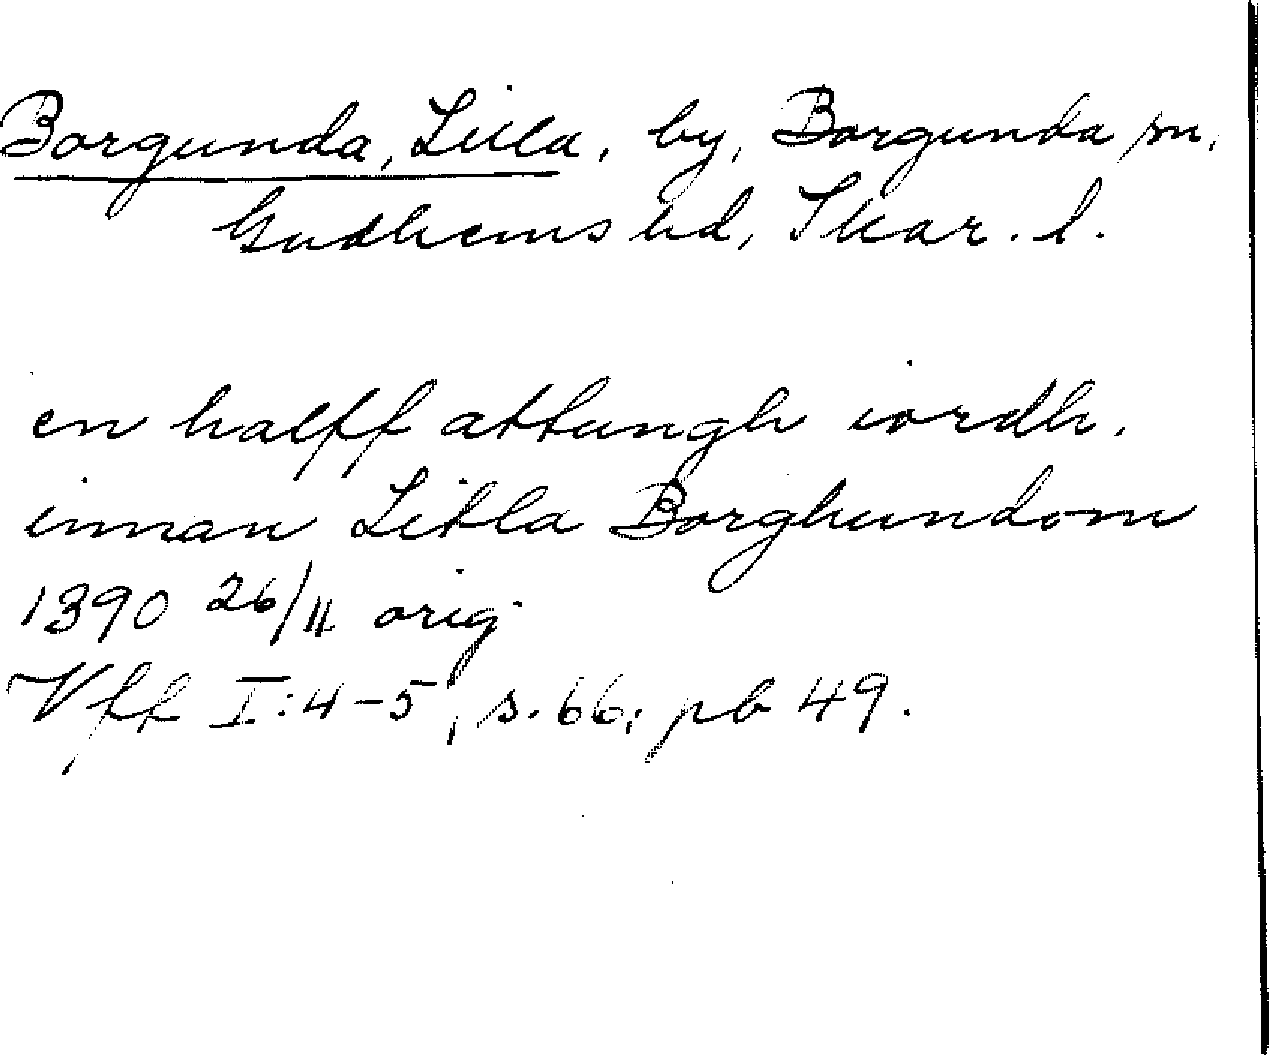 Borgunda, Lilla, by, Borgunda sn,
Gudhems hd, Skar. l.
en halff attungh iordh.
innan Litla Borghundom
1390 26/11 orig.
Vff I:4-5, s. 66, pb 49.